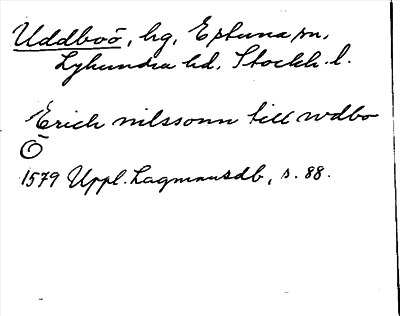 Uddboö, hg, Estuna sn,
Lyhundra hd. Stockh. l.
Erich nilssonn till wdbo
Ö
1579 Uppl. Lagmansdb, s. 88.